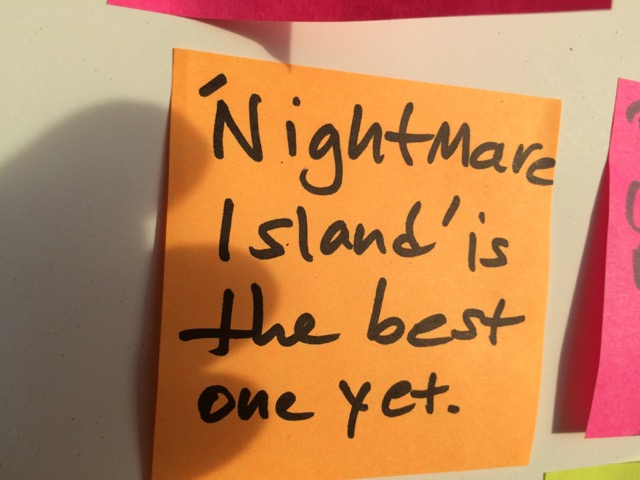 'Nightmare
Island' is
the best
one yet.